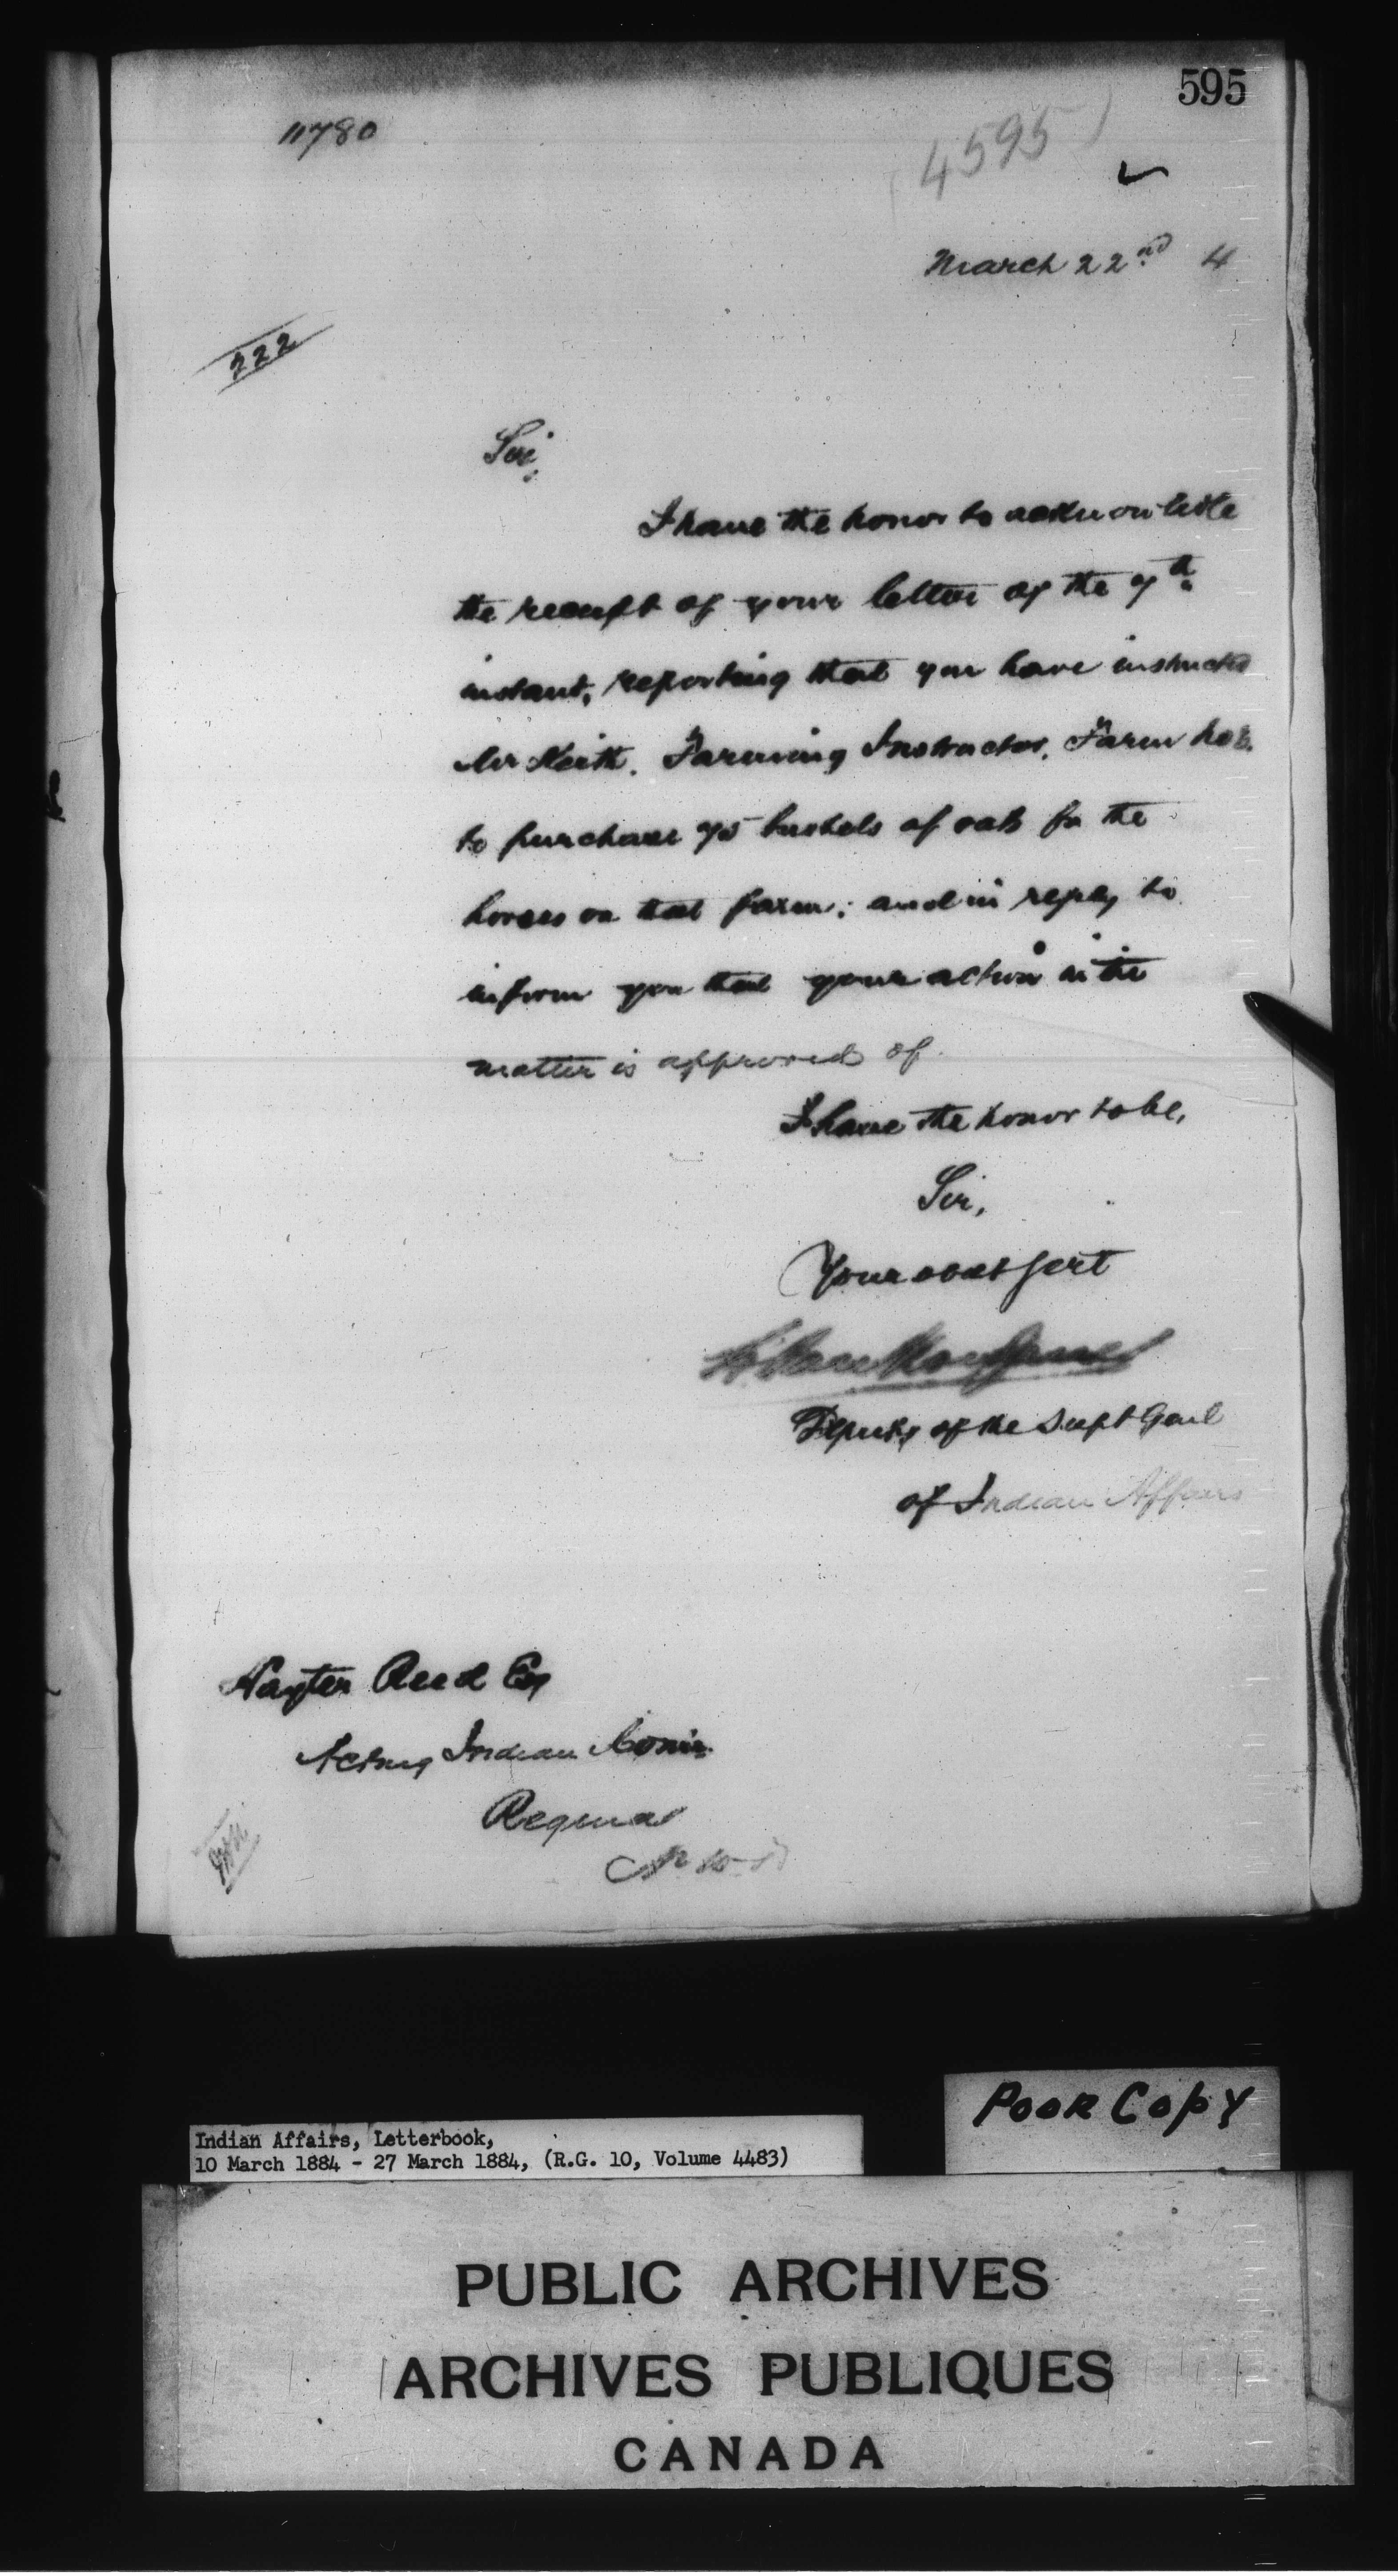 595
11780
4595
March 22nd 4
222
Sir,
I have the honor to acknowledge
the receipt of your letter of the 7th
instant, reporting that you have instructed
Mr Keith. Farming Instructor. Farm No
to purchase 75 bushels of oats for the
horses on that farm; and in reply to
inform you that your action in the
matter is approved of.
I have the honor to be,
Sir,
Your obdt Servt
L. VanKoughnet
Deputy of the Supt Genl
of Indian Affairs
Hayter Reed Esq
Acting Indian Comr.
Regina
N.W.T
Poor Copy
Indian Affairs, Letterbook,
10 March 1884 - 27 March 1884, (R.G. 10, Volume 4483)
PUBLIC ARCHIVES
ARCHIVES PUBLIQUES
CANADA